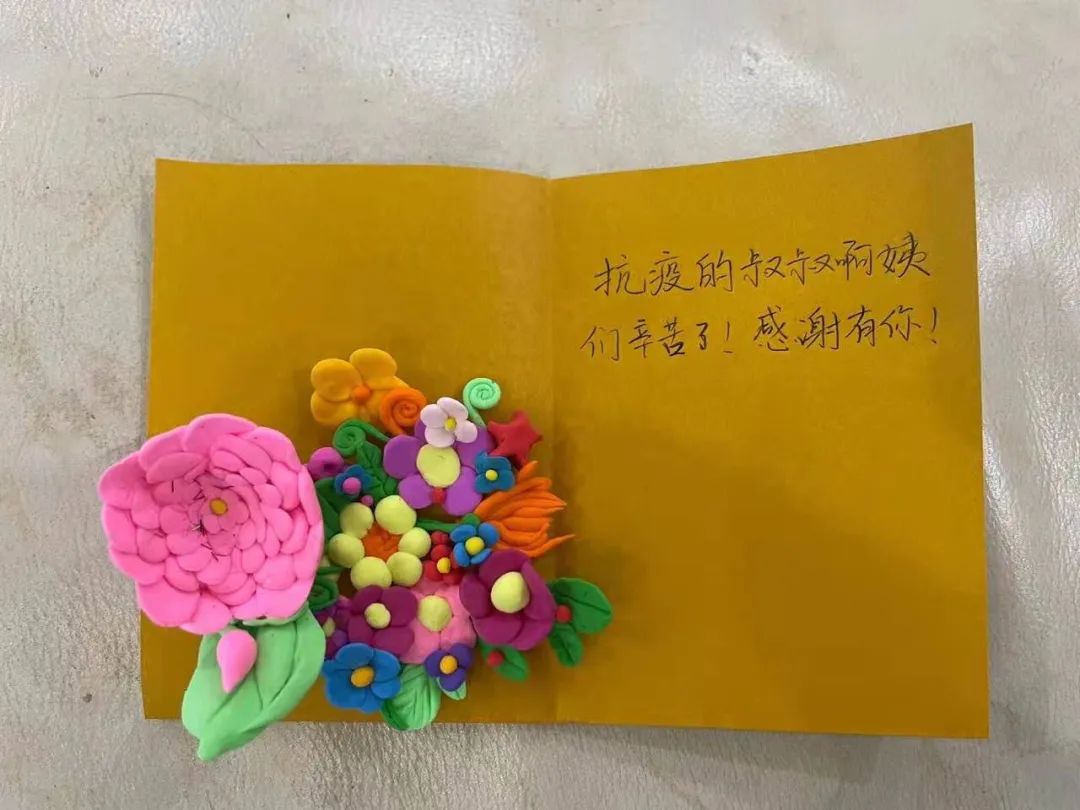 抗疫的叔叔啊姨
们辛苦了！感谢有你！